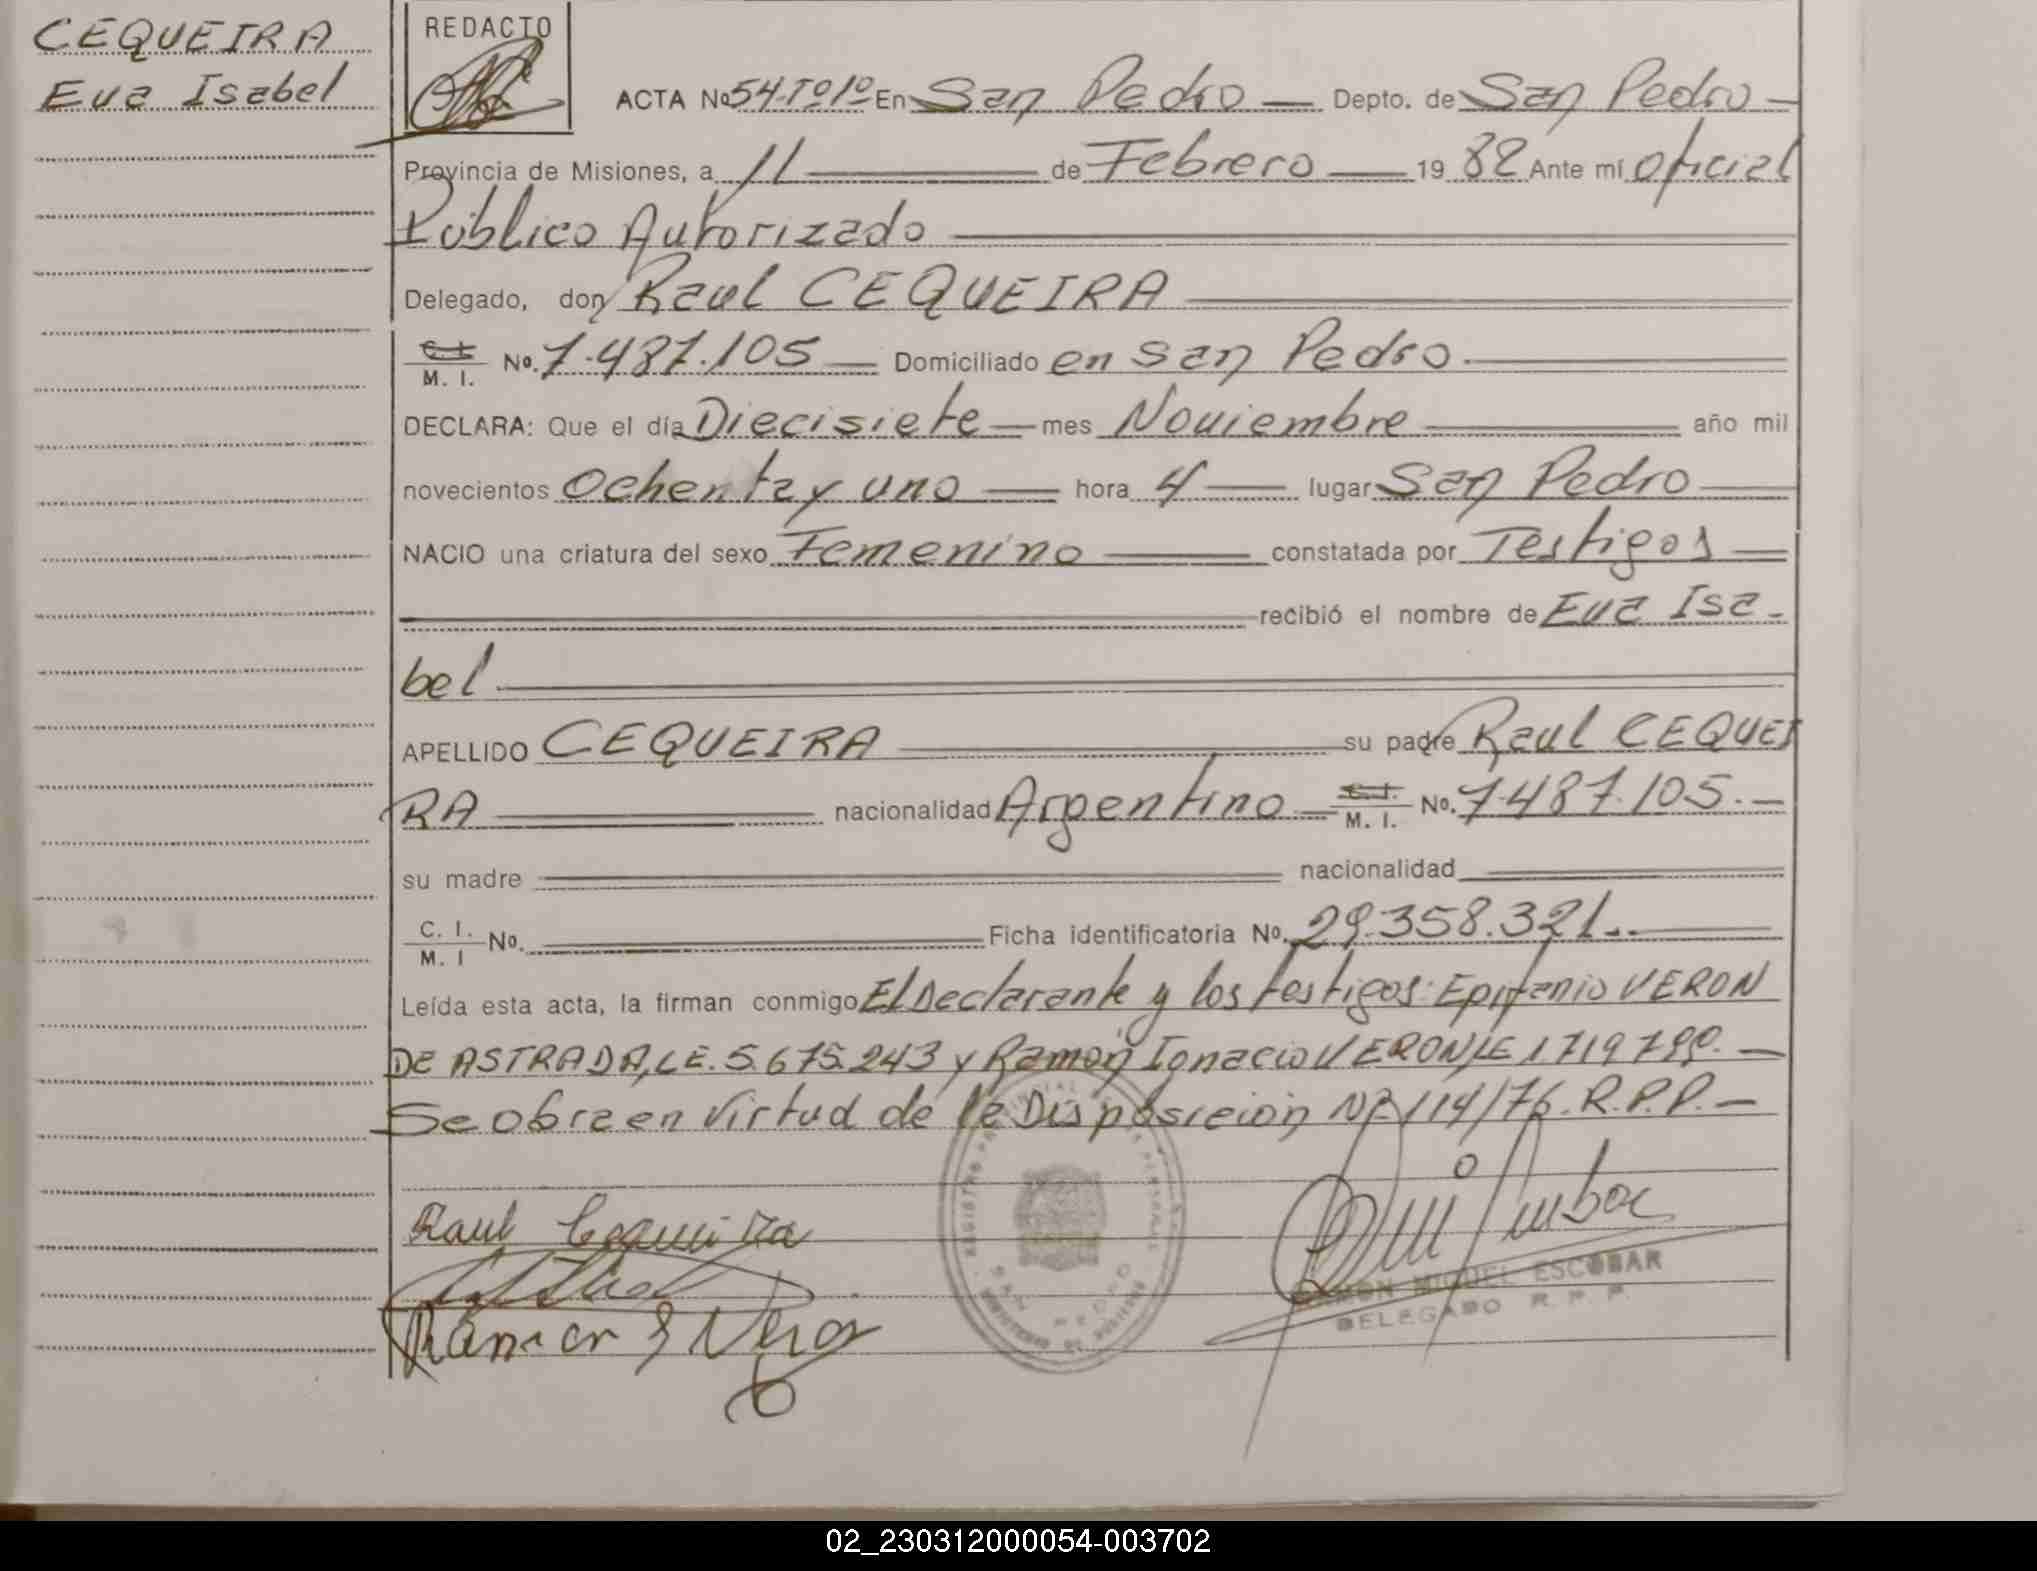 CEQUEIRA
Eva Isabel
REDACTO
ACTA No 54-Tº1º En San Pedro Depto. de San Pedro
Provincia de Misiones, a 11 de Febrero 19 82 Ante mí oficial
Público Autorizado
Delegado, don Raul CEQUEIRA
C. I. M. I. No. 7.487.105 Domiciliado en San Pedro.
DECLARA: Que el día Diecisiete mes Noviembre año mil
novecientos Ochenta y uno hora 4 lugar San Pedro
NACIO una criatura del sexo Femenino constatada por Testigos
recibió el nombre de Eva Isa-
bel
APELLIDO CEQUEIRA su padre Raul CEQUEI
RA nacionalidad Argentino C. I. M. I. No. 7.487.105.-
su madre nacionalidad
C. I. M. I No. Ficha identificatoria No. 29.358.321.-
Leída esta acta, la firman conmigo El Declarante y los testigos: Epifanio VERON
DE ASTRADA, LE. 5.675.243 y Ramón Ignacio VERON, LE
Se obra en virtud de la Disposición Nº 114/76. R.P.P.-
Raul Cequeira
RAMON MIGUEL ESCOBAR
DELEGADO R. P. P.
SAN PEDRO
02_230312000054-003702